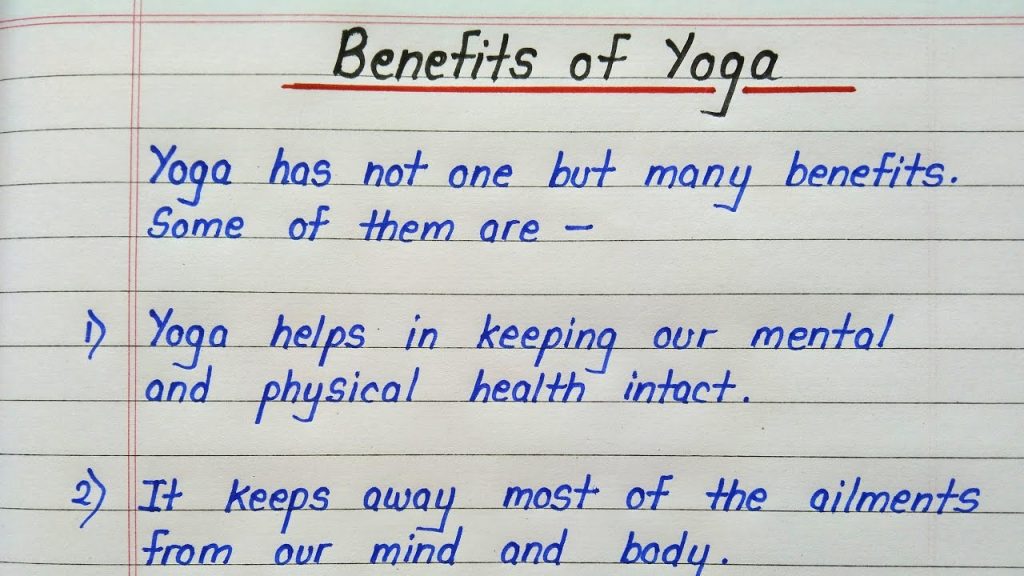 Benefits of Yoga
Yoga has not one but many benefits.
Some of them are –
1) Yoga helps in keeping our mental
and physical health intact.
2) It keeps away most of the ailments
from our mind and body.